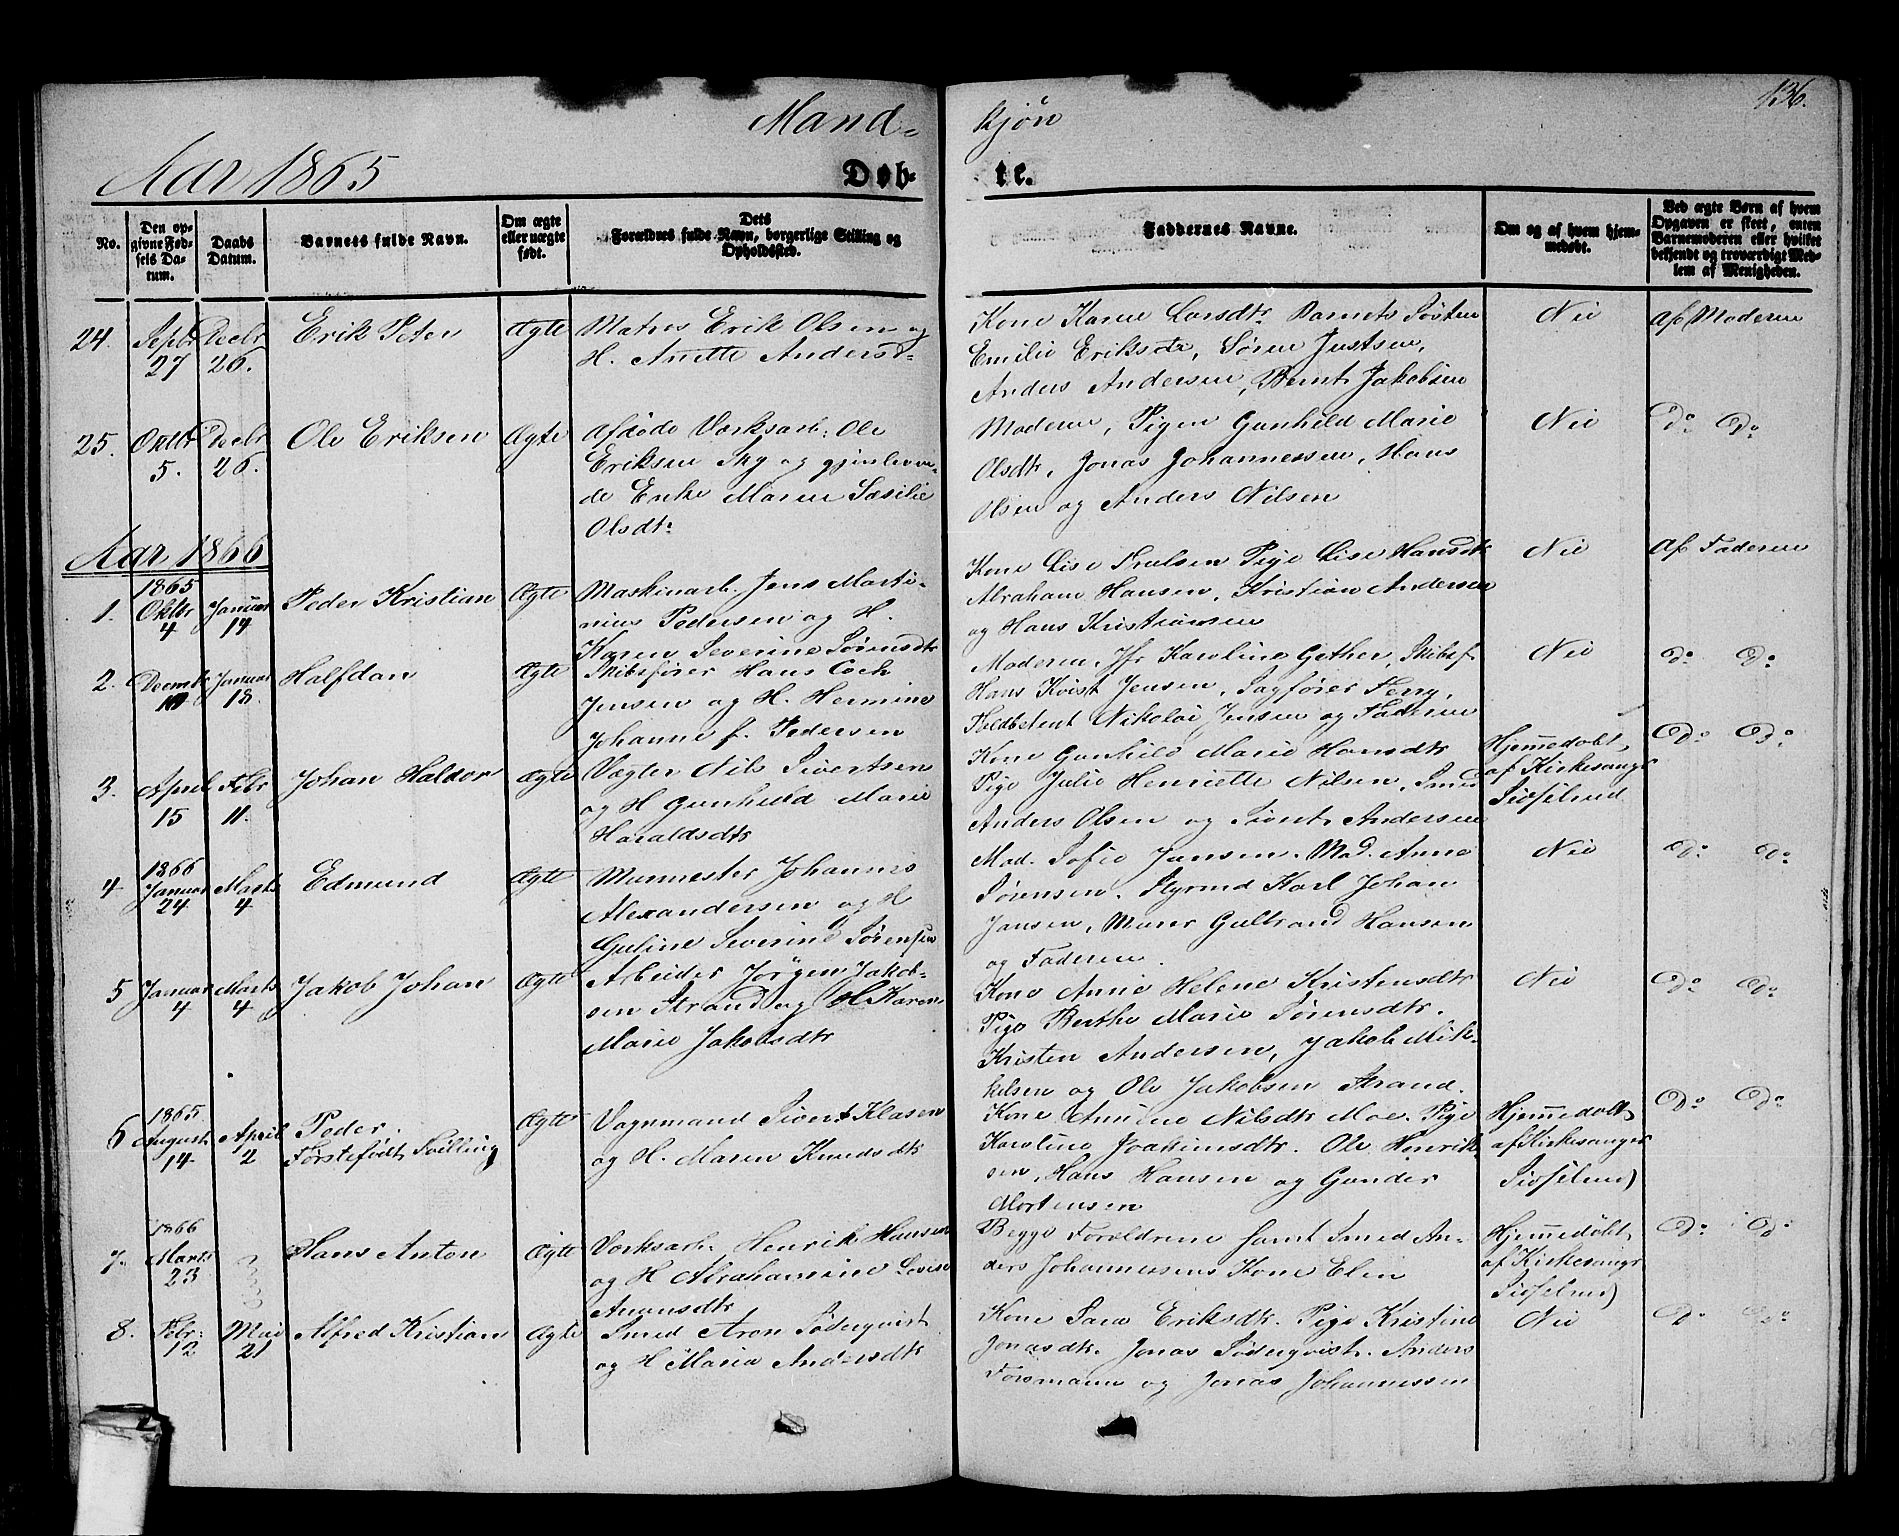 136.
Mand-
kjøn
Aar 1865
Døb-
te.
No.
Den op-
givne Fød-
sels Da-
tum.
Daabs
Datum.
Barnets fulde Navn.
Om ægte
eller uægte
født.
Dets
Forældres fulde Navn, borgerlige Stilling og
Opholdssted.
Faddernes Navne.
Om og af hvem hjem-
medøbt.
Ved ægte Børn af hvem
Opgaven er skeet, enten
Barnemoderen eller hvilket
bekjendt og troværdigt Med-
lem af Menigheden.
24.
Septbr
27
Decbr
26.
Erik Peter
Ægte
Matros Erik Olsen og
H. Anette Andersd-
Kone Karen Larsdtr Barnets Søster
Emilie Eriksdtr, Søren Justsen,
Anders Andersen, Bernt Jakobsen
Nei
Af Moderen
25.
Oktbr
5.
Decbr
26.
Ole Eriksen
Ægte
Afdøde Værksarb. Ole
Eriksen Sky og gjenleven-
de Enke Maren Sæsilie
Olsdtr
Moderen, Pigen Gunhild Marie
Olsdtr, Jonas Johannessen, Hans
Olsen og Anders Nilsen
Nei
Do Do
Aar 1866
1.
1865
Oktbr
4
Januar
14
Peder Kristian
Ægte
Maskinarb. Jens Marti-
nius Pedersen og H.
Karen Severine Sørensdtr
Kone Lise Truelsen Pige Lise Hansdtr
Abraham Hansen, Kristian Andersen
og Hans Kristiansen
Nei
Af Faderen
2.
Decmbr
Januar
18.
Halfdan
Ægte
Skibsfører Hans Coch
Jensen og H. Hermine
Johanne f. Pedersen
Moderen, Jfr Karoline Gether, Skibsf.
Hans Kvist Jensen, Sagfører Ferry,
Toldbetjent Nikolai Jensen og Faderen
Nei
Do Do
3.
April
15
Febr
11.
Johan Haldor
Ægte
Vægter Nils Sivertsen
og H Gunhild Marie
Haraldsdtr
Kone Gunhild Marie Hansdtr
Pige Julie Henriette Nilsen, Smed
Anders Olsen og Sivert Andersen
Hjemmedøbt
af Kirkesanger
Do Do
4
1866
Januar
24
Marts
4
Edmund
Ægte
Murmester Johannes
Alexandersen og H
Guline Severine Sørensen
Mad. Sofie Jansen. Mad. Anne
Sørensen. Styrmd Karl Johan
Jansen, Murer Gulbrand Hansen
og Faderen.
Nei
Do Do
5
Januar
4
Marts
4
Jakob Johan
Ægte
Arbeider Jørgen Jakob-
sen Strand og H. Karen
Marie Jakobsdtr
Kone Anne Helene Kristensdtr
Pige Berthe Marie Sørensdtr.
Kristen Andersen, Jakob Mik-
kelsen og Ole Jakobsen Strand.
Nei
Do Do
6
1865
August
14
April
2
Peder.
Førstefødt Tvilling
Ægte
Vognmand Sivert Klasen
og H. Maren Knudsdtr
Kone Nilsdtr Moe. Pige
Karoline Joakimsdtr. Ole Henrik-
sen, Hans Hansen og Gunder
Mortensen
Hjemmedøbt
af Kirkesanger
Do Do
7.
1866
Marts
23
Hans Anton
Ægte
Værksarb. Henrik Hansen
og H Abrahamine Lovise
Amundsdtr
Begge Forældrene samt Smed An-
ders Johannesens Kone Elen
Hjemmedøbt
af Kirkesanger
Do Do
8.
Febr:
12
Mai
21
Alfred Kristian
Ægte
Smed Aron Söderqvist
og H Maria Andersdtr
Kone Sara Eriksdtr. Pige Kristine
Jonasdtr. Jonas Söderqvist. Anders
Forsmann og Jonas Johannessen
Nei
Do Do